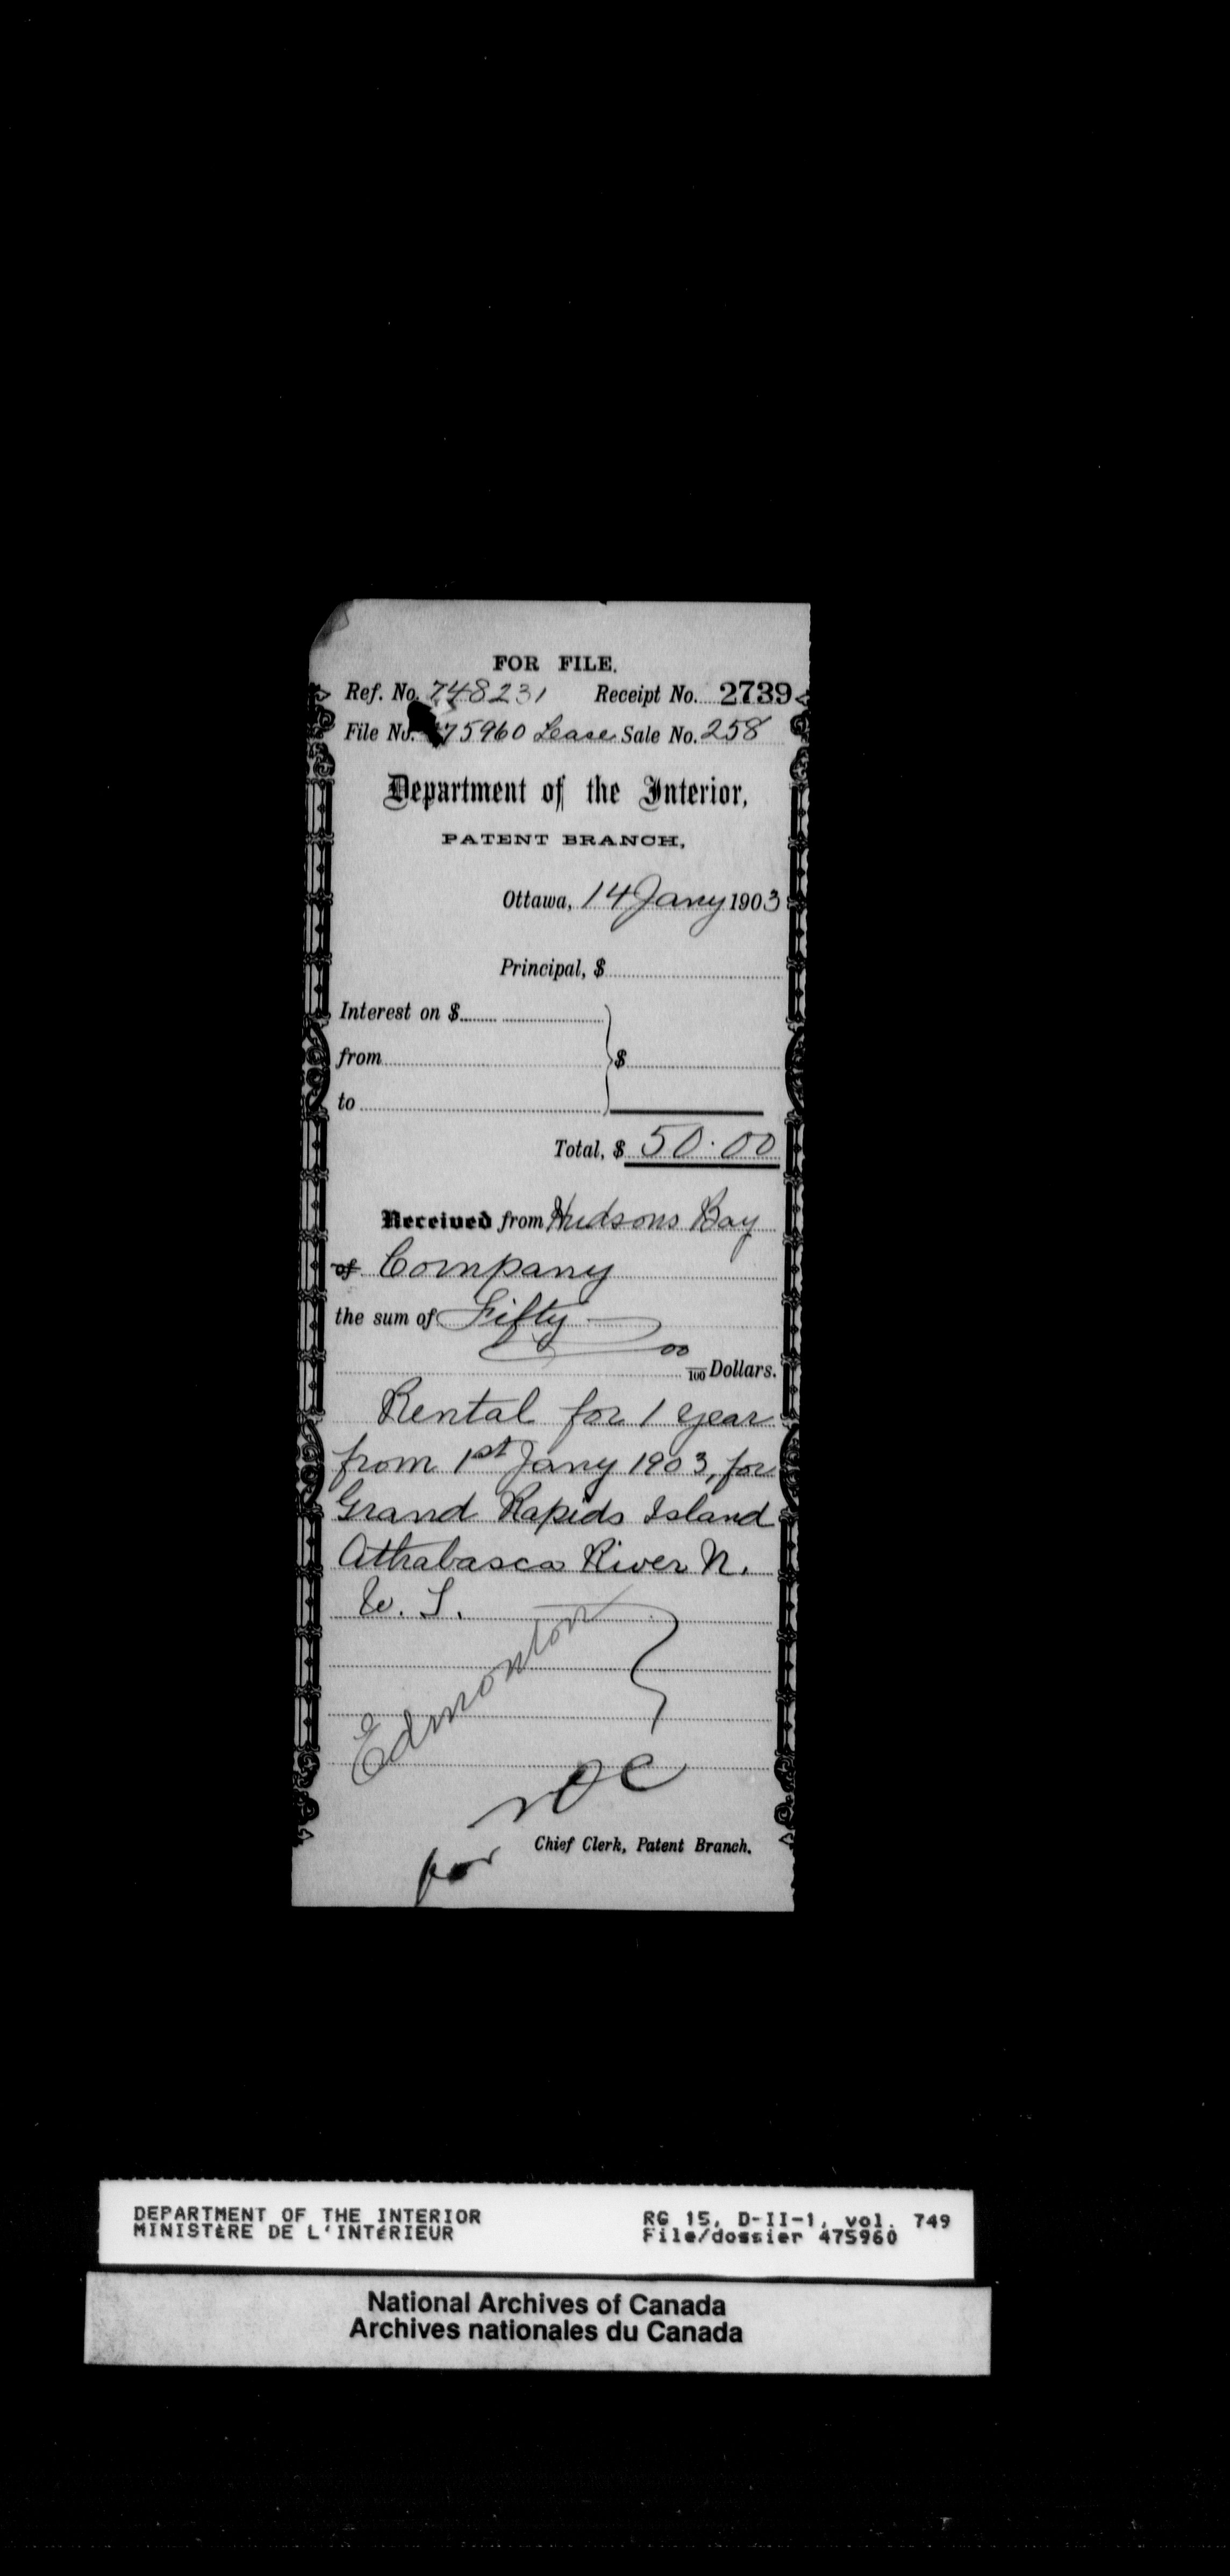 FOR FILE.
Ref. No. 748231 Receipt No. 2739
File No. 475960 Lease Sale No. 258
Department of the Interior,
PATENT BRANCH,
Ottawa, 14 Jany 1903
Principal, $
Interest on $
from $
to
Total, $ 50.00
Received from Hudsons Bay
of Company
the sum of Fifty
00/100 Dollars.
Rental for 1 year
from 1st Jany 1903, for
Grand Rapids Island
Athabasca River N.
W. T.
Edmonton
Chief Clerk, Patent Branch.
for
DEPARTMENT OF THE INTERIOR RG 15, D-II-1, vol. 749
MINISTÈRE DE L'INTÉRIEUR File/dossier 475960
National Archives of Canada
Archives nationales du Canada